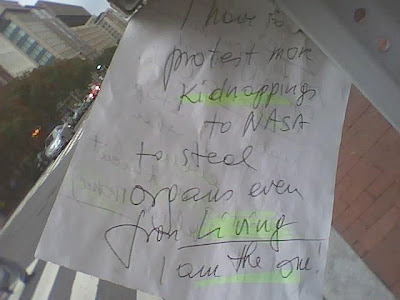 I have to
protest more
kidnappings
to NASA
to steal
organs even
from living
I am the one!